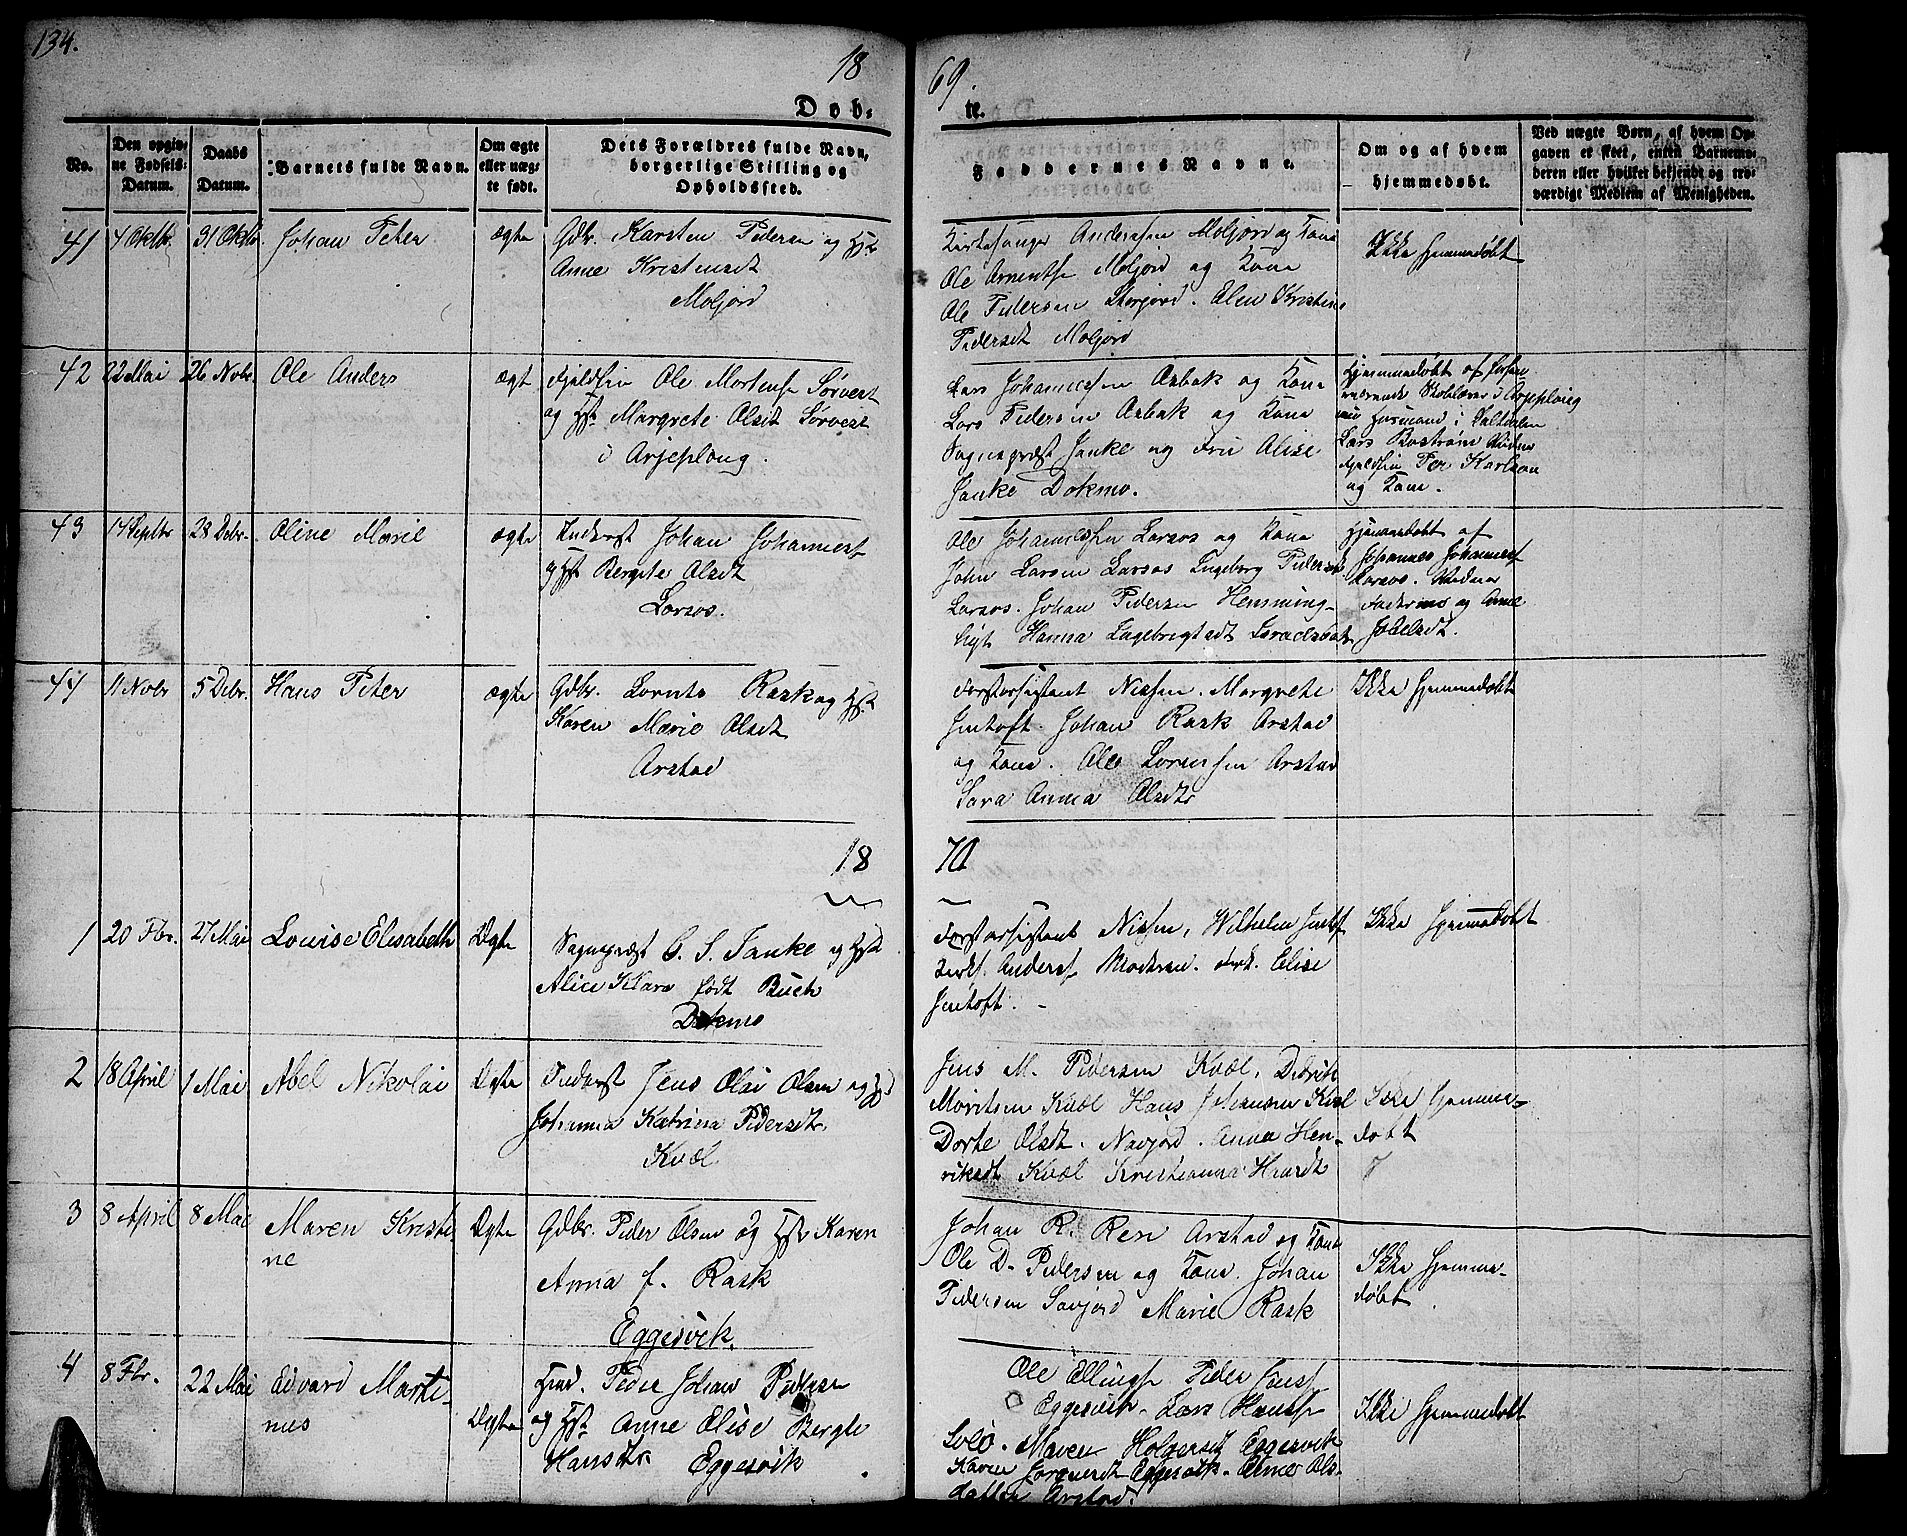 134.
18
69.
Døb-
te.
No.
Den opgiv-
ne Fødsels-
Datum.
Daabs
Datum.
Barnets fulde Navn.
Om ægte
eller uæg-
te født.
Dets Forældres fulde Navn,
borgerlige Stilling og
Opholdssted.
Faddernes Navne.
Om og af hvem
hjemmedøbt.
Ved uægte Børn, af hvem Op-
gaven er skeet, enten Barnemo-
deren eller hvilket bekjendt og tro-
værdigt Medlem af Menigheden.
41
4 Oktbr.
31 Oktbr.
Johan Peter
ægte
Gdbr. Karsten Pedersen og Hst
Anne Kristensdt
Moljord
Kirkesanger Anderssen Moljord og Kone
Ole Arentsen Moljord og Kone
Ole Pedersen Storjord. Elen Kristine
Pedersdt Moljord
Ikke hjemmedøbt
42
22 Mai
26 Novbr.
Ole Anders
ægt
fjeldfin Ole Mortens Sørvest
og Hst. Margrete Olsdt Sørvest
i Arjeploug.
Lars Johannessen Aabak og Kone
Lars Pedersen Aabak og Kone
Sognepræst Janke og Fru Alise
Janke Dokmo.
Hjemmedøbt af
værende Skolelærer i Arjeploug
nu Husmand i Saltdalen
Lars Boström Vidne
fjeldfin Per Karlson
og Kone.
43
14 Septbr
28 Debr.
Oline Marie
ægte
Inderst Johan Johannesf
og Hst Bergite Olsdt
Larsos.
Ole Johannessen Larsos og Kone
John Larsen Larsos Ingeborg Pedersdt
Larsos. Johan Pedersen Hemming-
høgt Hanna Ingebrigtsdt
Hjemmedøbt af
Johannes Johannesf
Larsos. Vidner
Fademo og Anne
44
11 Nobr
5 Debr.
Hans Peter
ægte
Gdbr. Lornts Rask og Hst
Karen Marie Olsdt
Arstad
Forstassistent Nielsen. Margrete
Jentoft. Johan Rask Arstad
og Kone. Ole Lorensen Arstad
Sara Anna Olsdtr
Ikke hjemmedøbt
18
70
1
20 Fbr.
27 Mai
Louise Elisabeth
Ægte
Sognepræst C. S. Janke og Hst
Alice Klara født Buch
Dokmo
Forstassistent Nielsen, Wilhelm Jentof
Kirks. Andersf Moderen. Frk. Elise
Jentoft. -
Ikke hjemmedøbt
2
18 April
1 Mai
Abel Nikolai
Ægte
Inderst Jens Olai Olsen og Hst
Johanna Katrina Pedersdtr
Kvæl
Jens M. Pedersen Kvæl, Didrik
Moritsen Kvæl Hans Johansen Kvæl
Dorte Olsdt. Navjord. Anna Hen-
riksdt Kvæl Kristianna
Ikke hjemme-
døbt
3
8 April
8 Mai
Maren Kristi-
ne
Ægte
Gdbr. Peder Olsen og Hst Karen
Anna f. Rask
Eggesvik.
Johan R. Arstad og Kone
Ole D. Pedersen og Kone. Johan
Pedersen Savjord Marie Rask
Ikke hjemme-
døbt.
4
8 Fbr.
22 Mai
Edvard Marti-
nus
Ægte
Ind. Peder Johan Pedersen
og Hst. Anne Elise Bergte
Hansdtr. Eggesvik
Ole Ellingsf Peder Jensf
Eggesvik. Lars Hansf
Maren Holgersdt Eggesvik
Karen Eggesvik. Ols-
datter Arstad.
Ikke hjemmedøbt